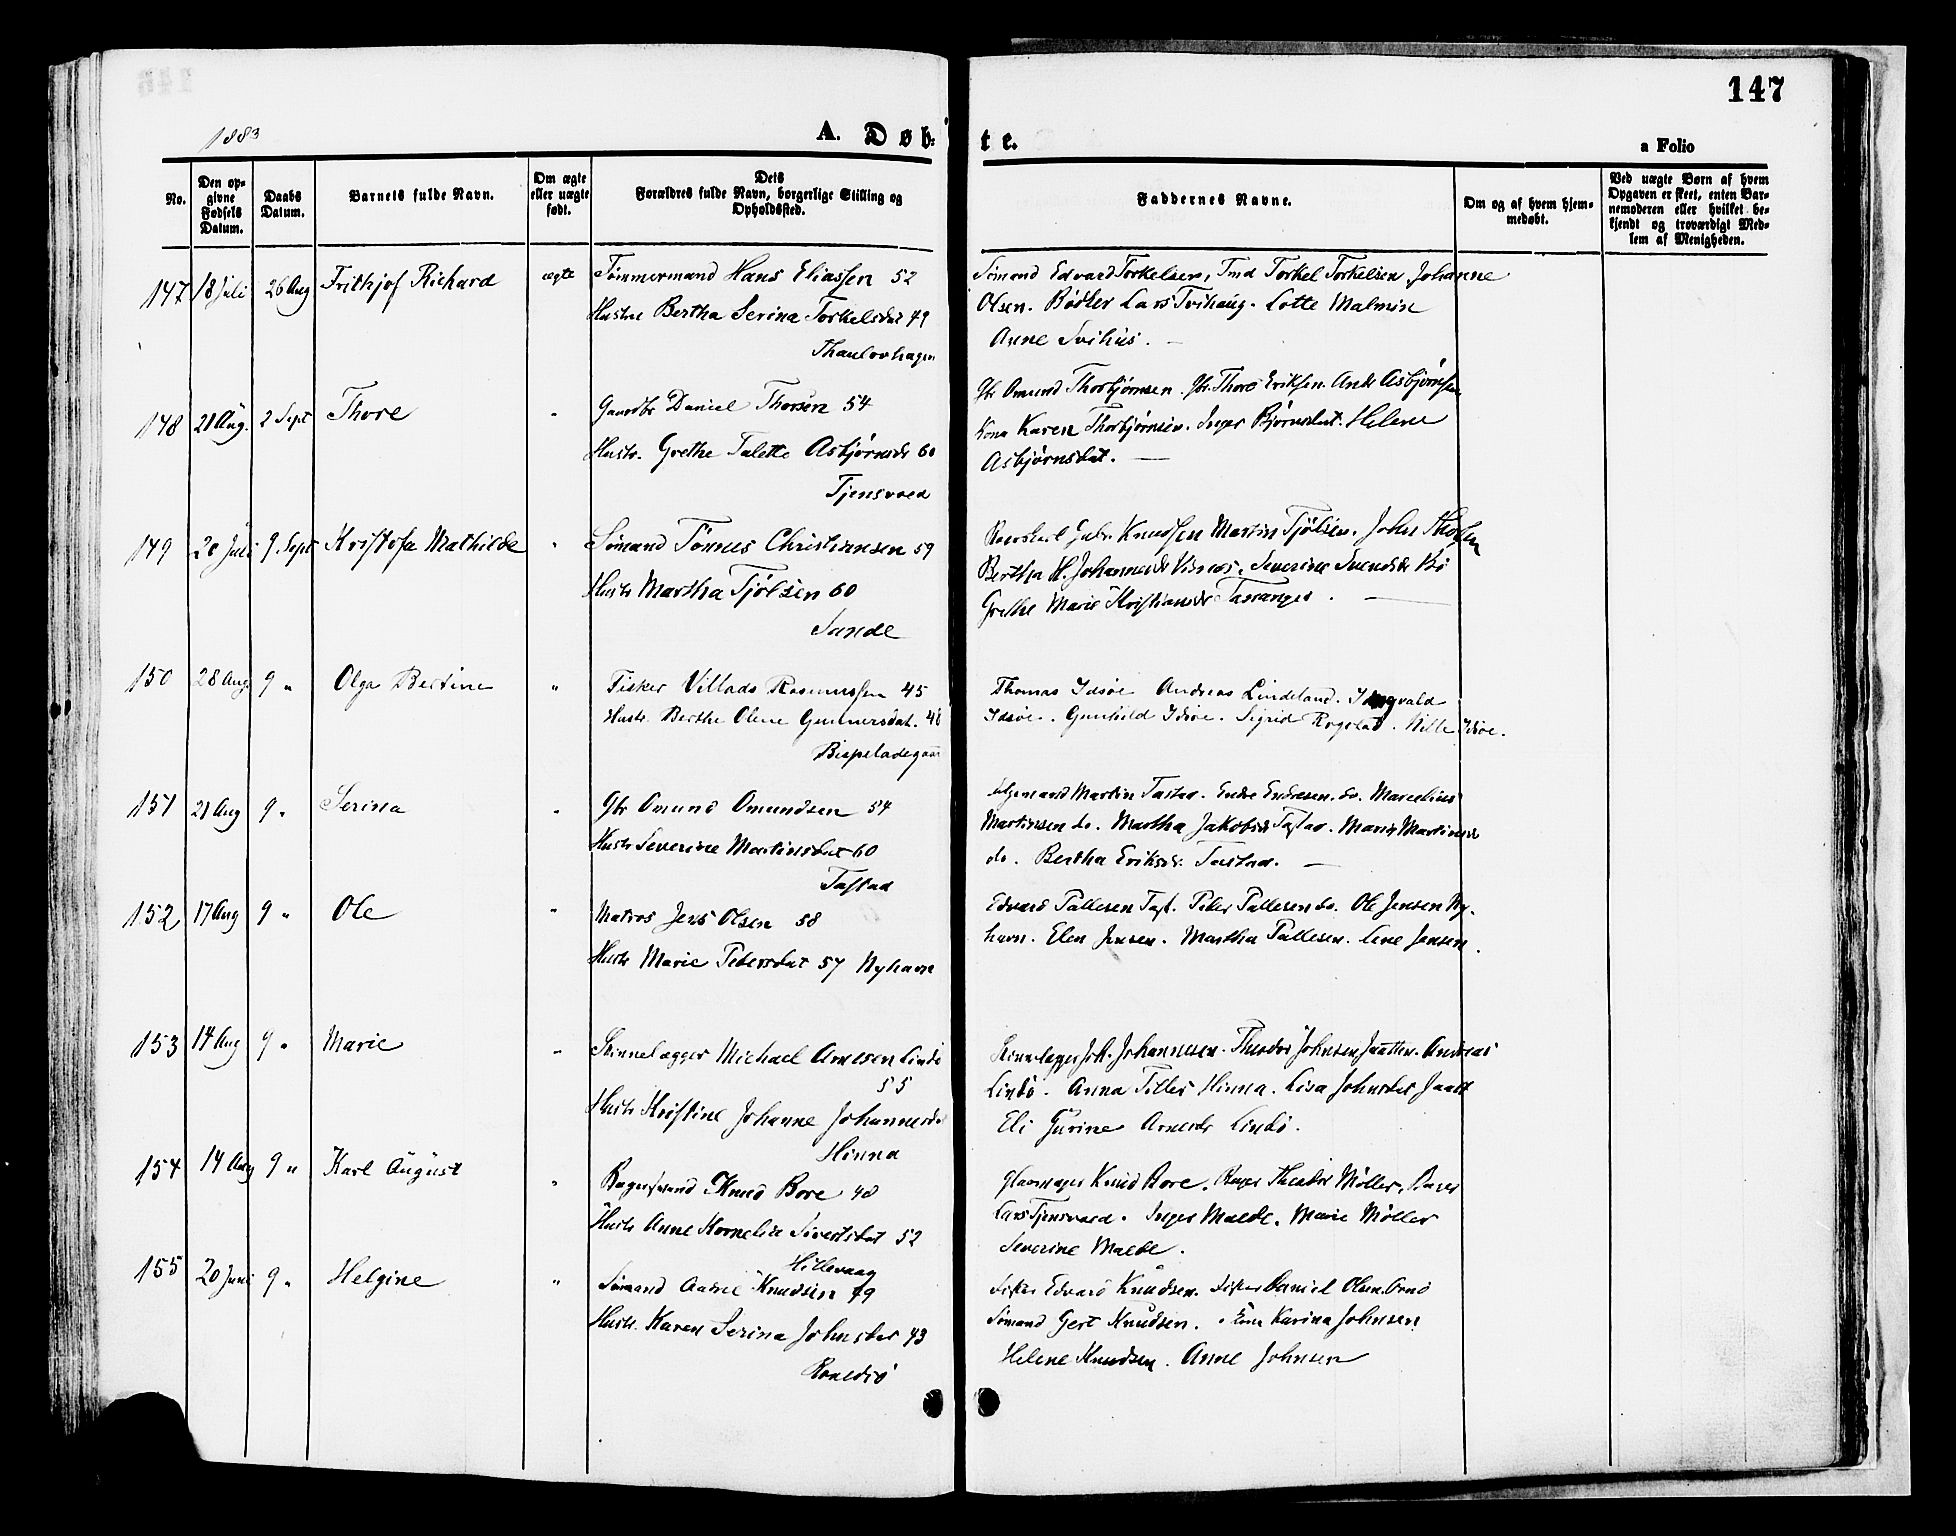 147
1883
A. Døbte.
a Folio
No.
Den opgivne Fødsels Datum.
Daabs Datum.
Barnets fulde Navn.
Om ægte eller uægte født.
Dets Forældres fulde Navn, borgerlige Stilling og Opholdssted.
Faddernes Navne.
Om og af hvem hjemmedøbt.
Ved uægte Børn af hvem Opgaven er skeet, enten Barnemoderen eller hvilket bekjendt og troværdigt Medlem af Menigheden.
147 18 Juli 26 Aug Frithjof Richard ægte Tømmermand Hans Eliassen 52
Hustru Bertha Serina Torkelsdat 49
Thaulovhagen
Sømand Edvard Torkelsen, Tmd Torkel Torkelsen, Johanne
Olsen. Bødker Lars Tvihaug. Lotte Malmin
Anne Svihus. —
148 21 Aug. 2 Sept Thore " Gaardbr Daniel Thorsen 54
Hustr. Grethe Talette Asbjørnsdr 60
Tjensvoed
Gbr Omund Thorbjørnsen. Gbr. Thore Eriksen. Andr Asbjørnsen
Kona Karen Thorbjørnsen. Inger Bjørnsdat. Helene
Asbjørnsdat. —
149 20 Juli 9 Sept Kristofa Mathilde " Sømand Tønnes Christiansen 59
Hustr Martha Tjølsen 60
Sande
Knudsen Martin Tjølsen. John Thorsen
Bertha H. Johannesdr Visnæs. Severine Svendsdr Bø
Grethe Marie Kristiansdr Tananger. —
150 28 Aug. 9 " Olga Bertine " Fisker Villads Rasmussen 45
Hustr. Berthe Oline Gunnarsdat. 48
Bispeladegaar
Thomas Idsøe Andreas Lindeland. Ingvald
Idsøe. Gunhild Idsøe. Sigrid Rogstad. Nille Idsøe.
151 21 Aug 9 " Serina " Gbr Omund Omundsen 54
Hustr Severine Martinsdat 60
Tastad
Martin Tastad. Endre Endresen do. Marcelius
Martinsen do. Martha Jakobsdr Tastad. Maria Martinsdr
do. Bertha Eriksdr. Tastad. —
152 17 Aug 9 " Ole " Matros Jens Olsen 58
Hustr Marie Pedersdat 57 Nyhavn
Edvard Pallesen Tast. Peder Pallesen do. Ole Jensen Ny-
havn. Elen Jensen. Martha Pallesen. Lene Jensen.
153 14 Aug 9 " Marie " Skinnelægger Michael Arnesen Lindø
55
Hustr Kristine Johanne Johannesdr
Hinna
Joh. Johannesen. Theodor Johnsen Jaatten. Andreas
Lindø. Anna Tilles Hinna. Lisa Johnsdr Jaatt
Eli Gurine Arnesdr Lindø.
154 14 Aug 9 " Karl August " Bagersvend Knud Bore 48
Hustr Anne Kornelia Sivertsdat 52
Hillevaag
Glasmager Knud Bore. Bager Theodor Møller. Bager
Lars Tjensvoed. Inger Maele. Marie Møller
Severine Maele.
155 20 Juni 9 " Helgine " Sømand Knudsen 49
Hustr. Karen Serina Johnsdat 43
Fisker Edvard Knudsen. Fisker Daniel Olsen
Sømand Gert Knudsen. Karina Johnsen
Helene Knudsen. Anne Johnsen